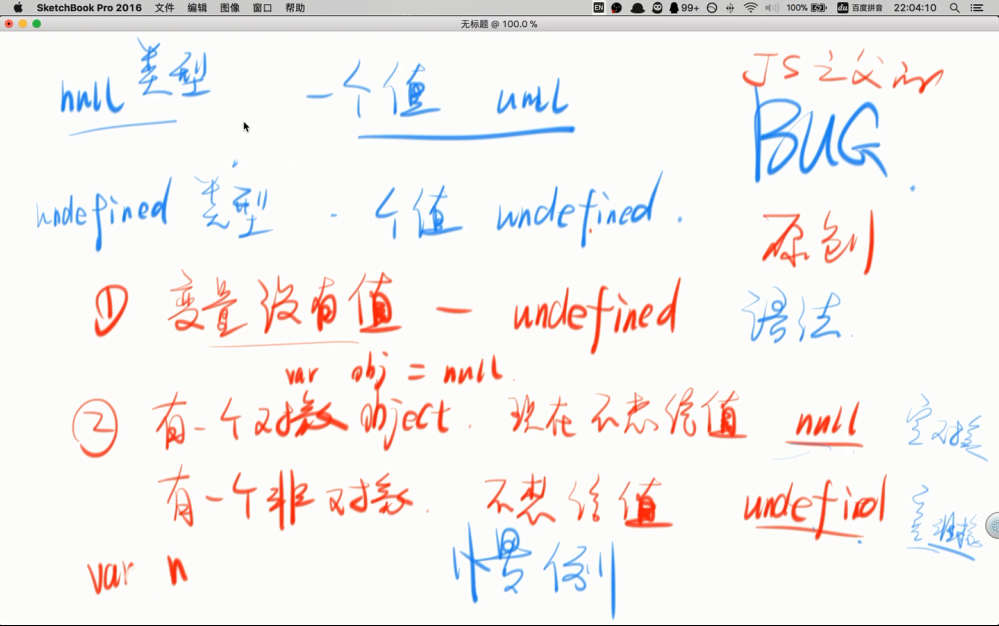 SketchBook Pro 2016 文件 编辑 图像 窗口 帮助 EN 99+ 100% 百度拼音 22:04:10
无标题 @ 100.0 %
null 类型 一个值 null
JS之父的
BUG
undefined 类型 一个值 undefined.
原创
① 变量没有值 — undefined
语法
var obj = null
② 有一个对象 object. 现在不想给值 null 空对象
有一个非对象. 不想给值 undefined
var n
惯例